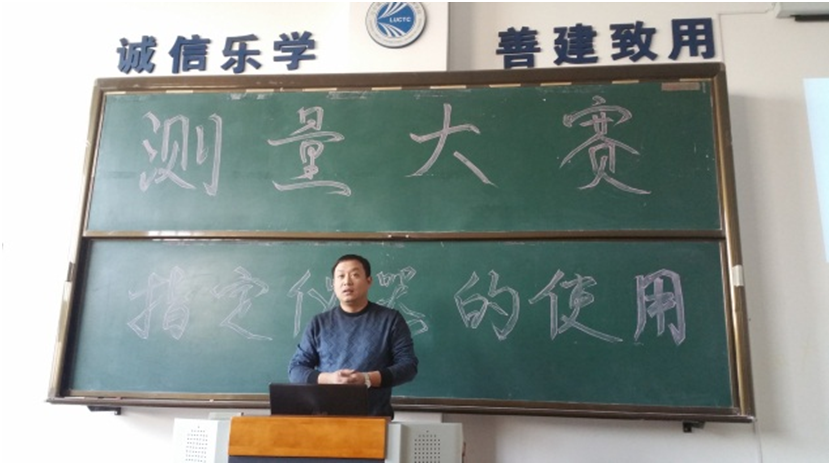 诚信乐学
LUCTC
善建致用
测量大赛
指定仪器的使用